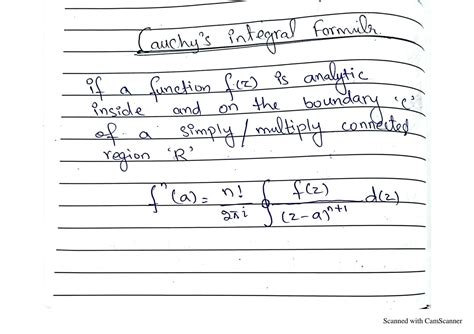 Cauchy's integral formula
if a function f(z) is analytic
inside and on the boundary 'c'
of a simply/multiply connected
region 'R'
fⁿ(a) = n!/2πi ∮ f(z)/(z-a)ⁿ⁺¹ d(z)
Scanned with CamScanner